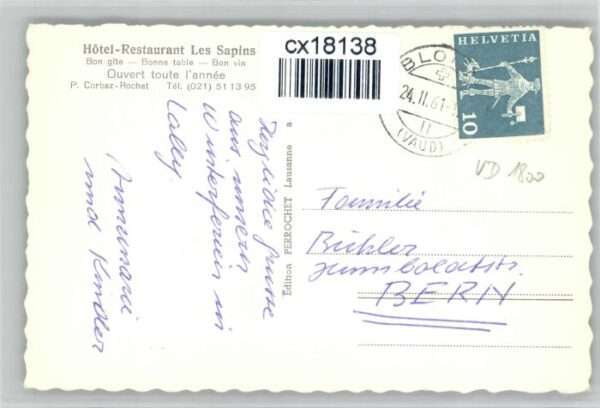 Hôtel-Restaurant Les Sapins
Bon gîte — Bonne table — Bon vin
Ouvert toute l'année
P. Corbaz-Rochat Tél. (021) 51 13 95
cx18138
HELVETIA
10
BLO
24.II.61
11
(VAUD)
VD 1800
Herzliche Grüsse
aus unsern
Winterferien in
Lally.
Annemarie
und Kinder
Edition PERROCHET Lausanne a
Familie
Bühler
Humboldtstr.
BERN